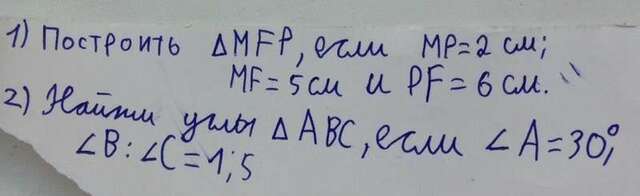 1) Построить ΔMFP, если MP=2 см;
MF=5см и PF=6 см.
2) Найти углы ΔABC, если ∠A=30°;
∠B:∠C=1;5